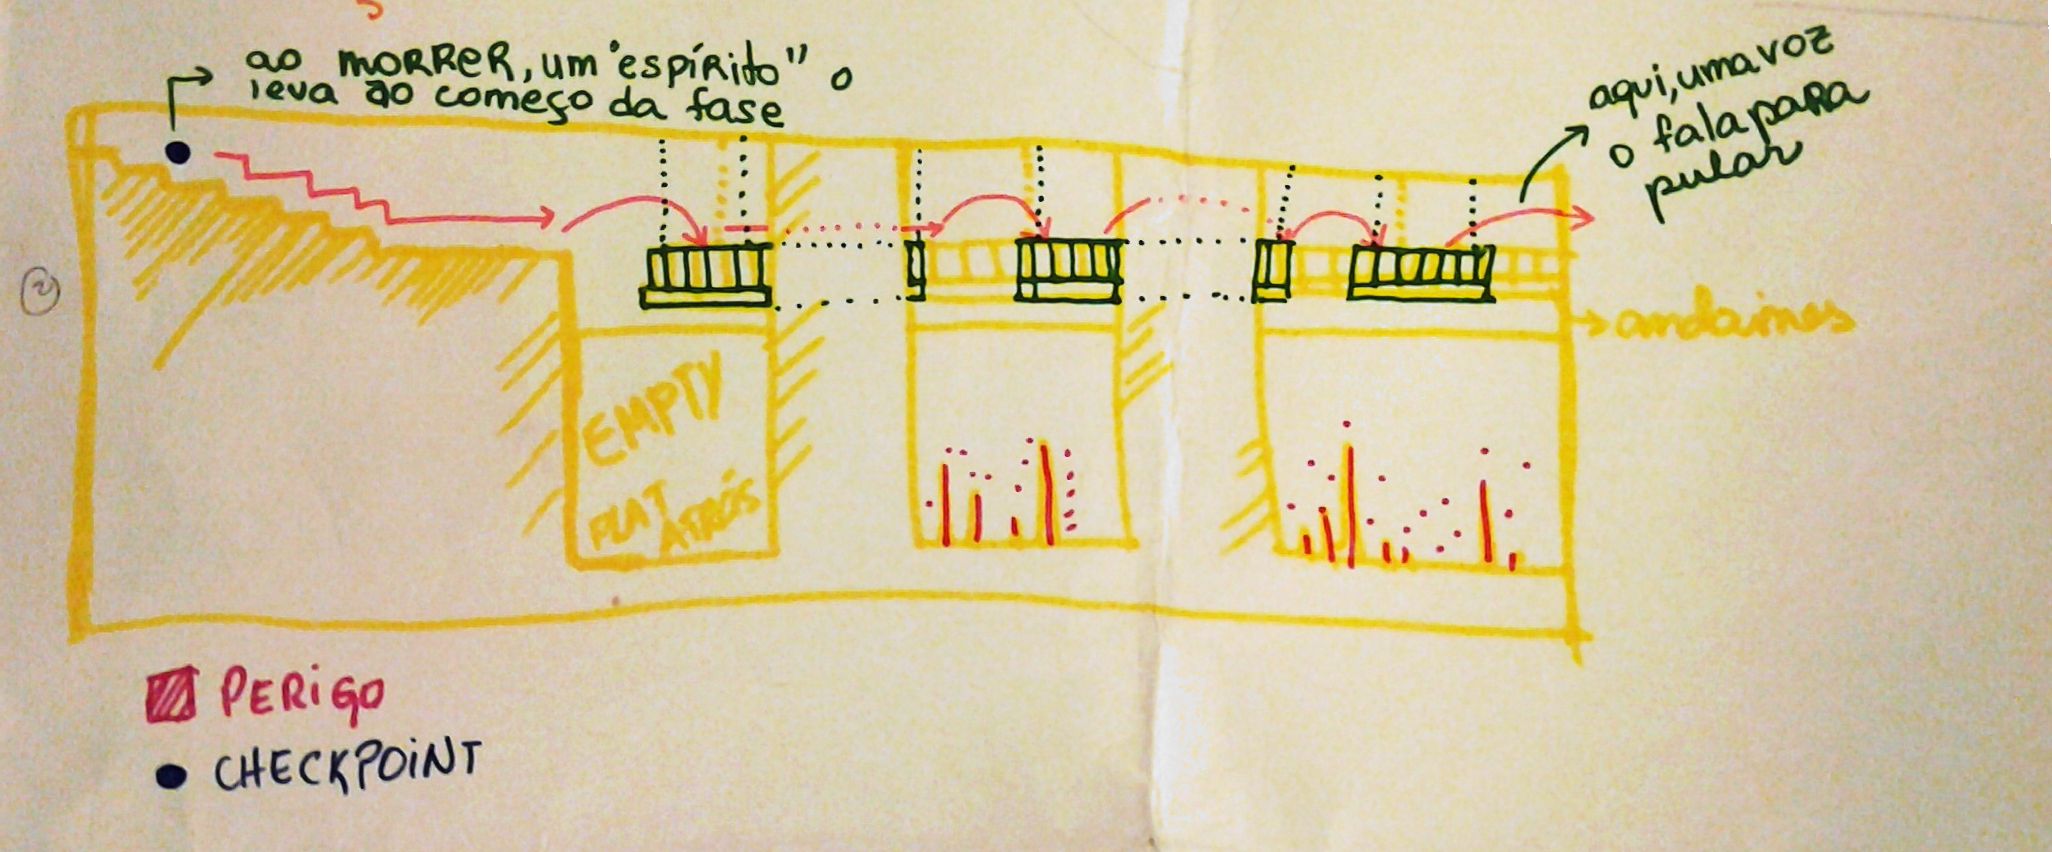 ao MORRER, um "espírito" o
leva ao começo da fase
aqui, uma voz
o fala para
pular
2
andaimes
EMPTY
PLAT
ATRÁS
PERIGO
CHECKPOINT